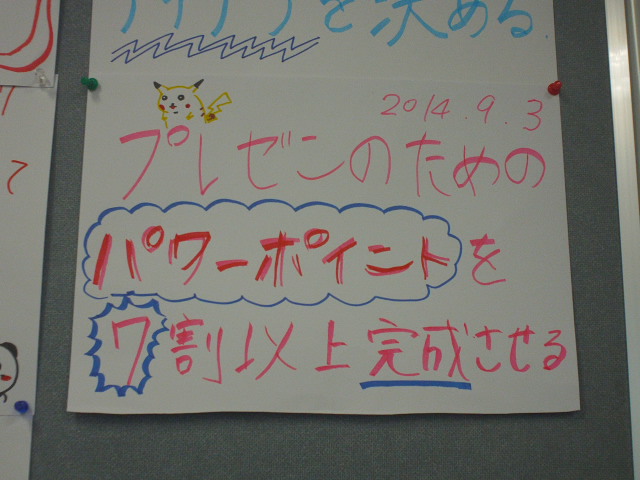 アイデアを決める.
2014.9.3
プレゼンのための
パワーポイントを
7割以上完成させる